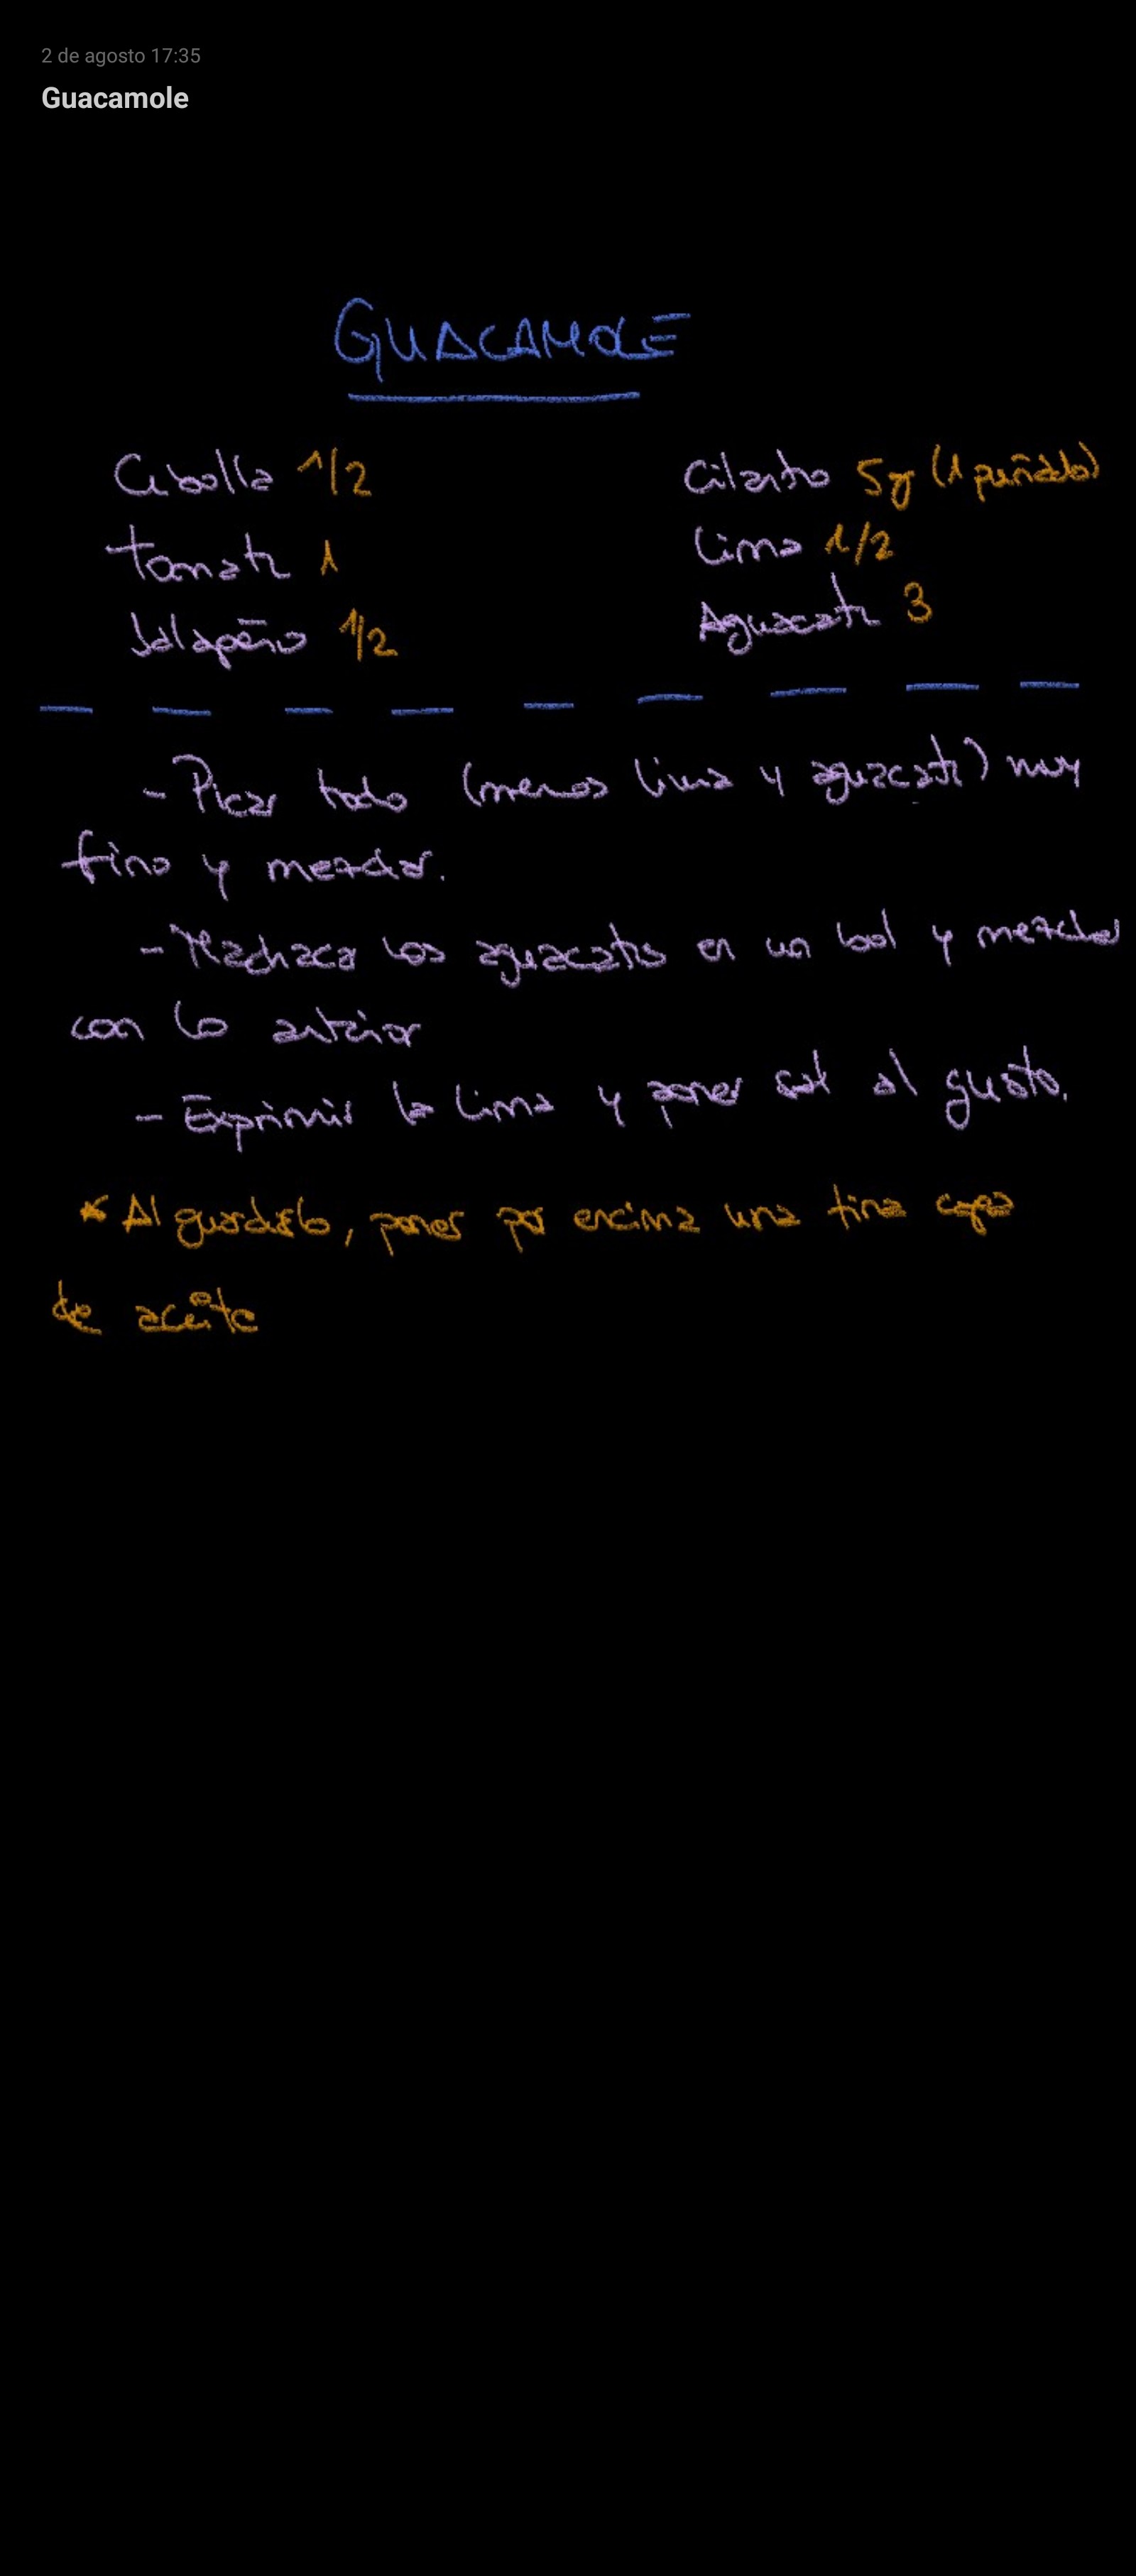 2 de agosto 17:35
Guacamole
GUACAMOLE
Cebolla 1/2
Cilantro 5g (1 puñado)
Tomate 1
Lima 1/2
Jalapeño 1/2
Aguacate 3
- Picar todo (menos lima y aguacate) muy
fino y mezclar.
- Machacar los aguacates en un bol y mezclar
con lo anterior
- Exprimir la lima y poner sal al gusto.
* Al guardarlo, poner por encima una fina capa
de aceite